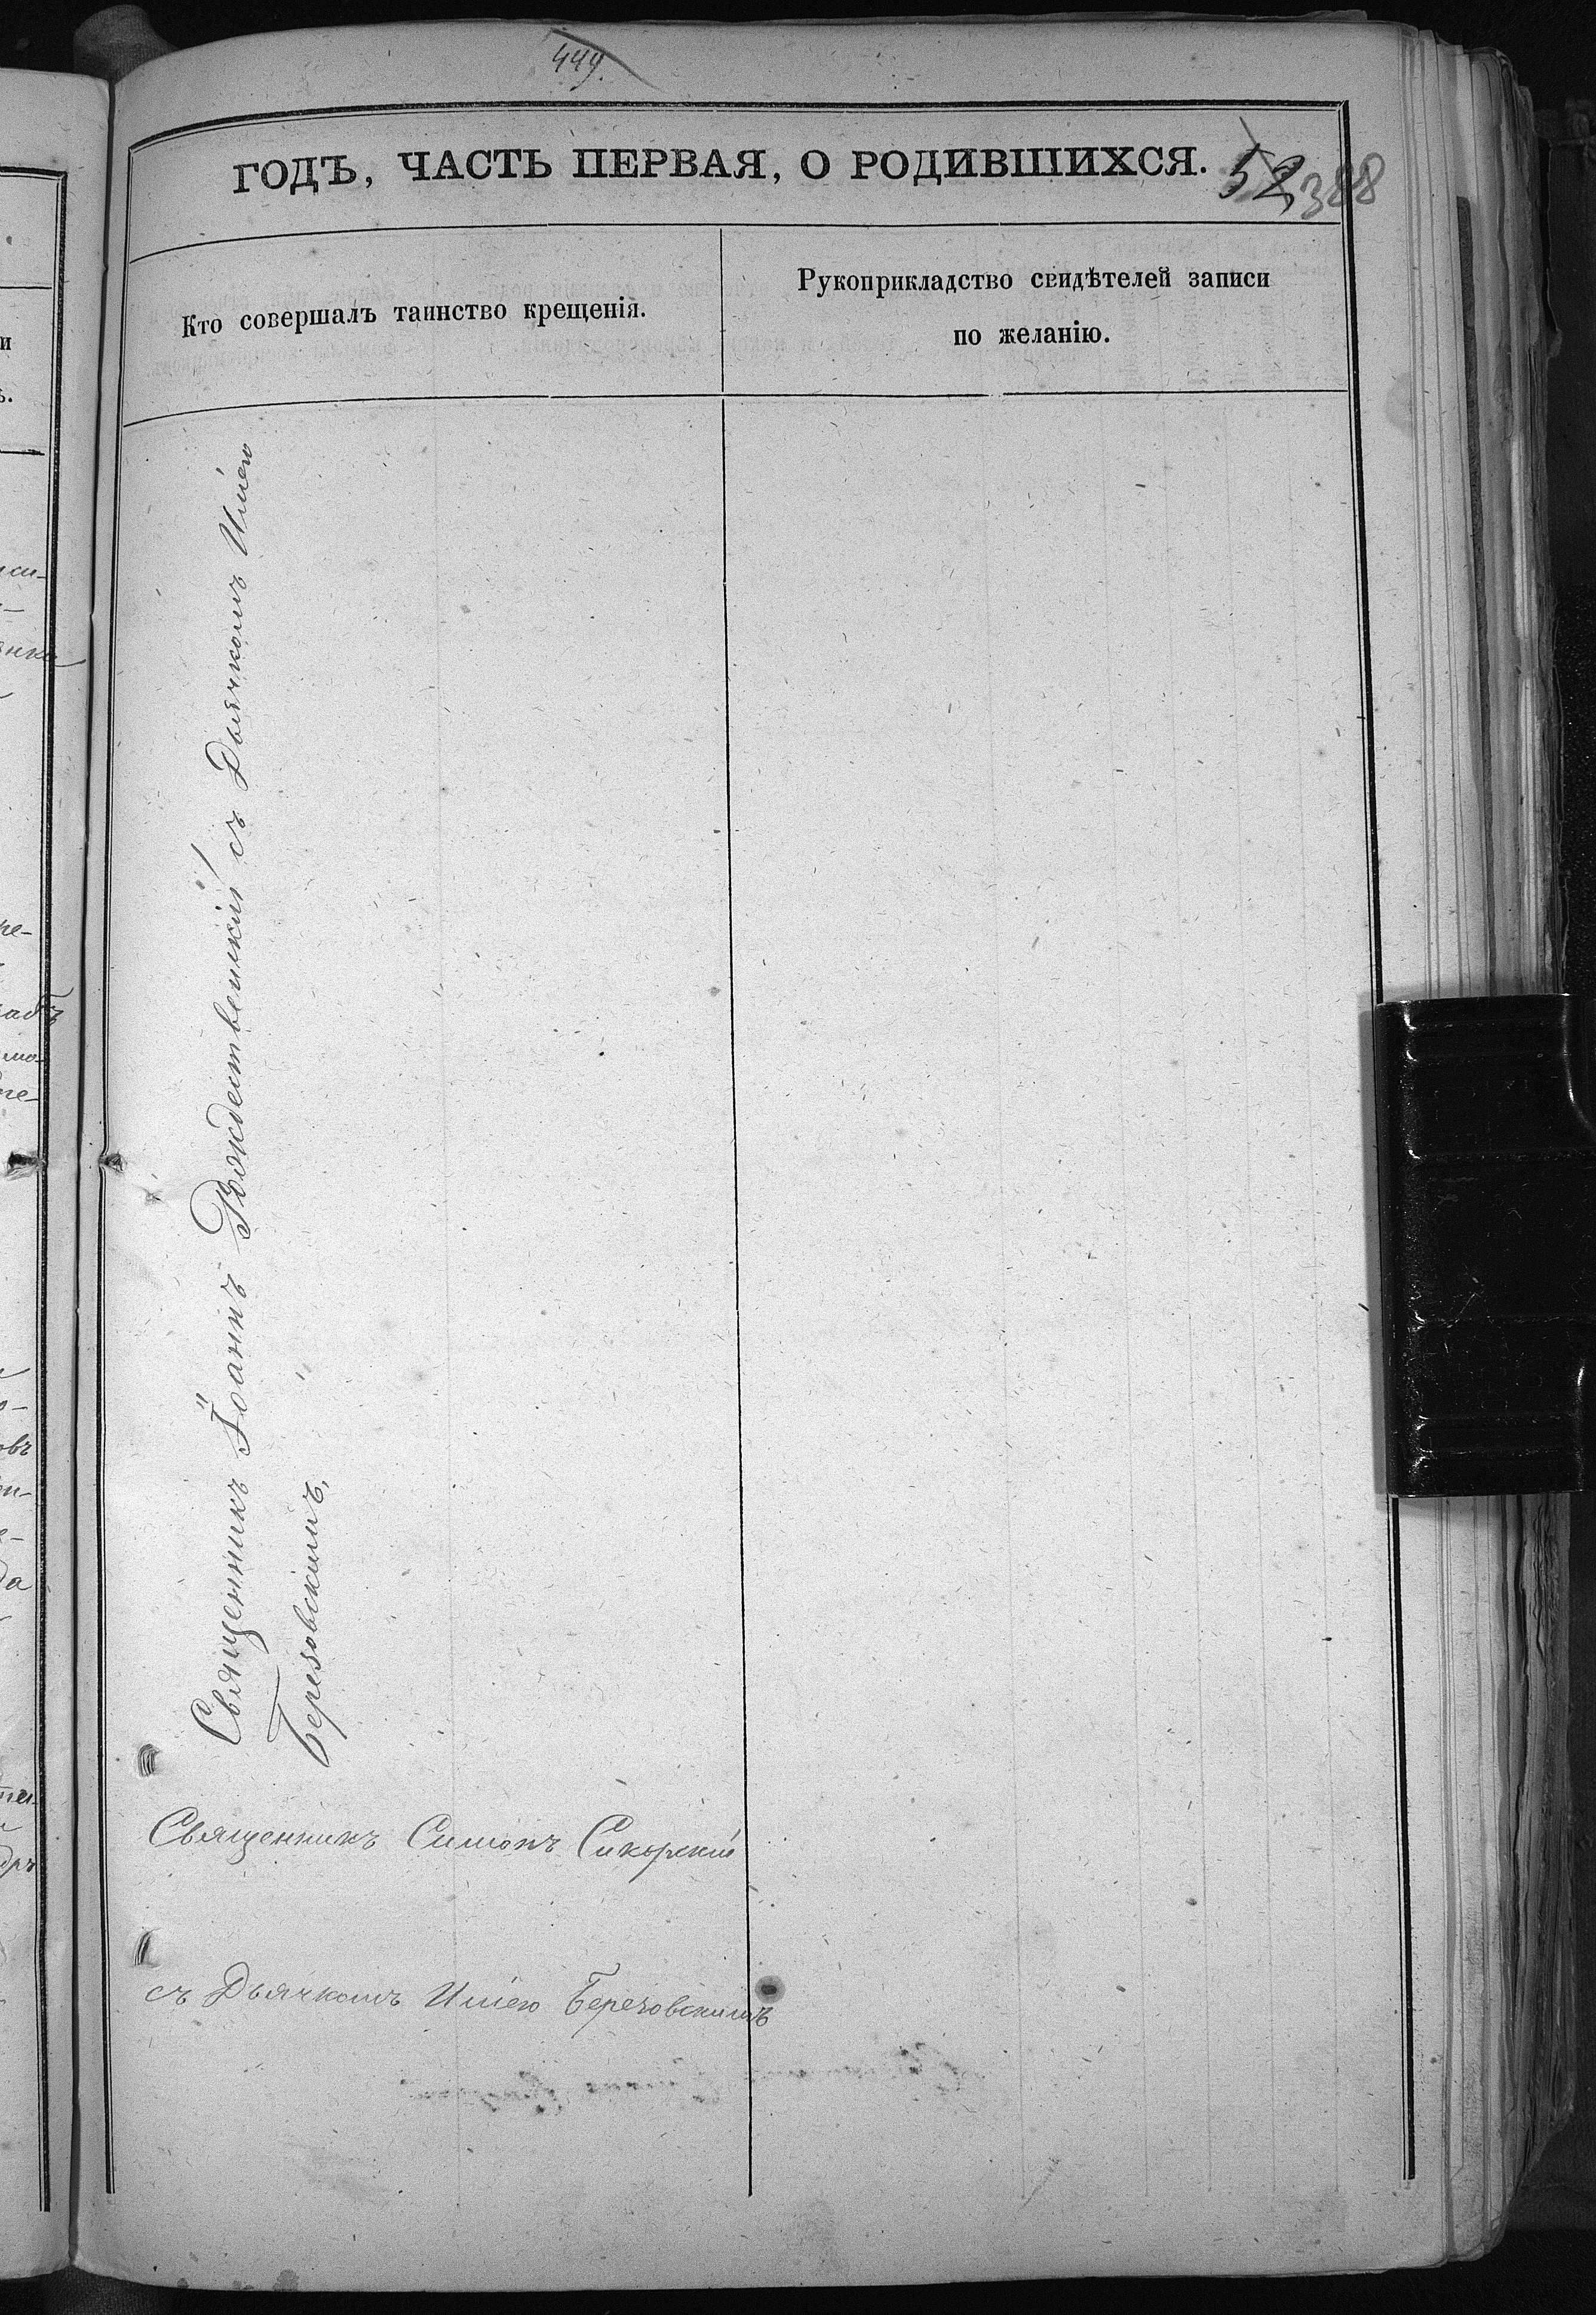 449.
ГОДЪ, ЧАСТЬ ПЕРВАЯ, О РОДИВШИХСЯ.
52 388
Кто совершалъ таинство крещенія.
Рукоприкладство свидѣтелей записи
по желанію.
Священникъ Іоаннъ Рождественскій съ Дьячкомъ Иліею
Березовскимъ,
Священникъ Симонъ Сикорскій
съ Дьячкомъ Иліею Березовскимъ